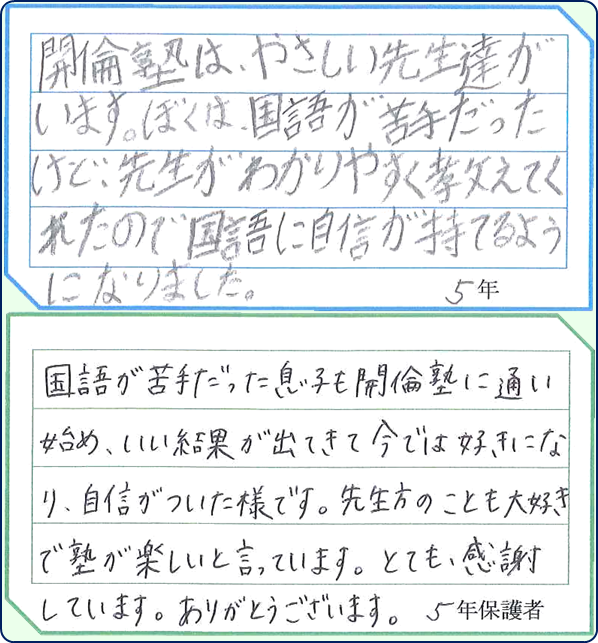 開倫塾は、やさしい先生達が
います。ぼくは、国語が苦手だった
けど、先生がわかりやすく教えてく
れたので国語に自信が持てるよう
になりました。
5年
国語が苦手だった息子も開倫塾に通い
始め、いい結果が出てきて今では好きにな
り、自信がついた様です。先生方のことも大好き
で塾が楽しいと言っています。とても、感謝
しています。ありがとうございます。
5年保護者